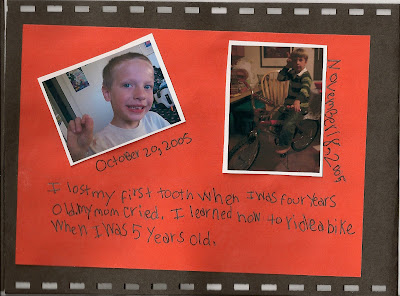 October 20, 2005
November 18, 2005
I lost my first tooth when I was four years
old. my mom cried. I learned how to ride a bike
when I was 5 years old.